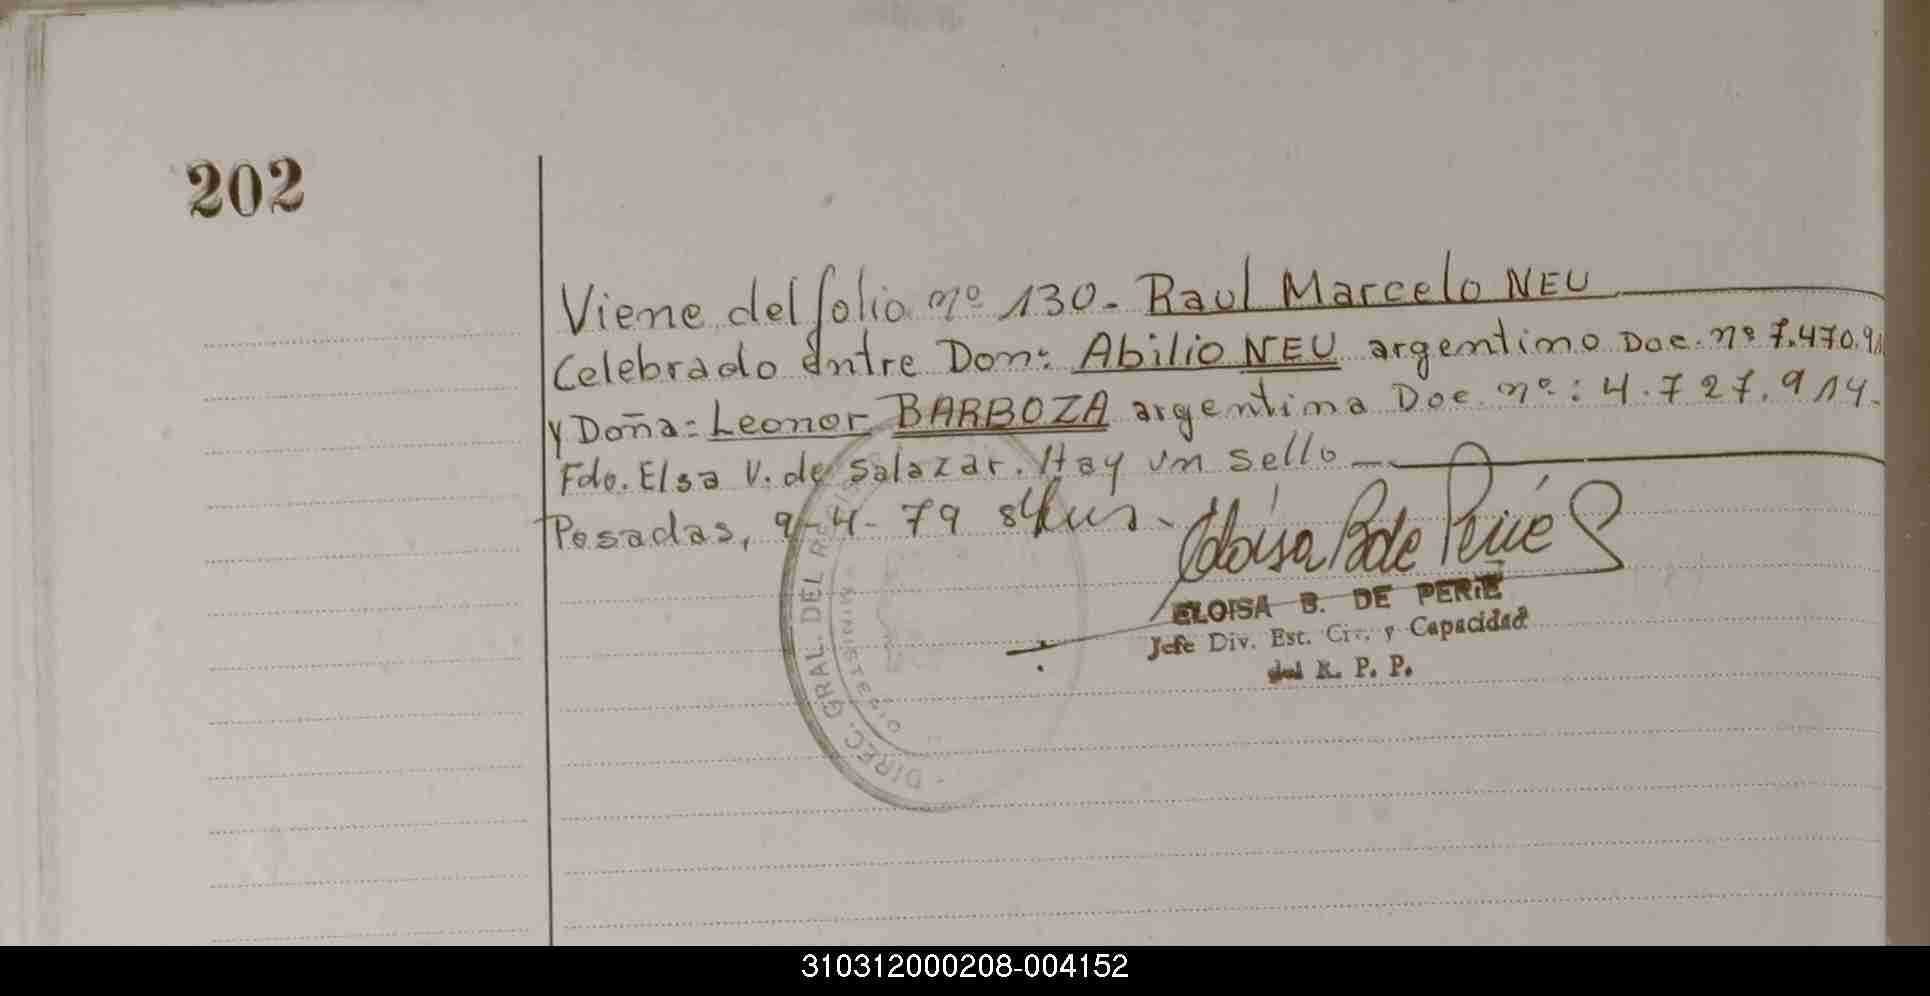 202
Viene del folio nº 130.- Raul Marcelo NEU
Celebrado entre Don: Abilio NEU argentino Doc. nº 7.470.9
y Doña: Leonor BARBOZA argentina Doc. nº: 4.727.914.
Fdo. Elsa V. de Salazar. Hay un sello
Posadas, 9-4-79
Eloisa B de Perié
ELOISA B. DE PERIE
Jefe Div. Est. Civ. y Capacidad
del R. P. P.
DIREC. GRAL. DEL
MINISTERIO
310312000208-004152